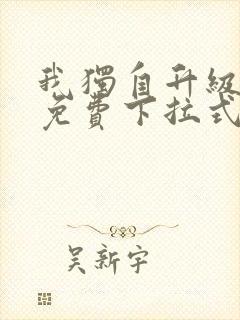 我獨自升級
免費下拉式
吴新宇